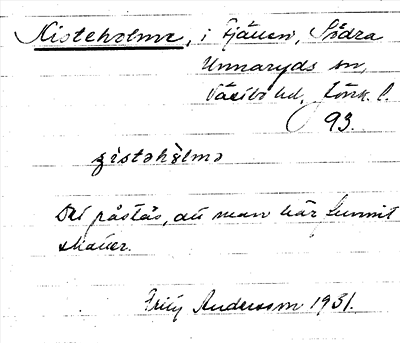 Kisteholme, i Fjären, Södra
Unnaryds sn,
Västbo hd, Jönk. l.
93.
çistəhòlmə
Det påstås, att man här funnit
skatter.
Fritz Andersson 1931.